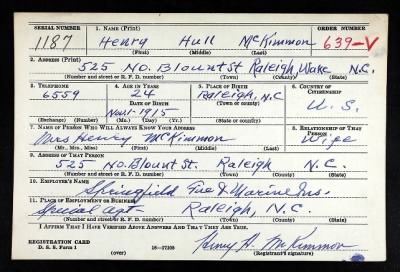 SERIAL NUMBER 1. NAME (Print) ORDER NUMBER
1187 Henry Hull McKimmon 639-V
(First) (Middle) (Last)
2. ADDRESS (Print)
525 No. Blount St Raleigh, Wake N.C.
(Number and street or R. F. D. number) (Town) (County) (State)
3. TELEPHONE 4. AGE IN YEARS 5. PLACE OF BIRTH 6. COUNTRY OF CITIZENSHIP
6559 24 Raleigh, N.C U.S.
DATE OF BIRTH (Town or county)
Nov. 1-1915
(Exchange) (Number) (Mo.) (Day) (Yr.) (State or country)
7. NAME OF PERSON WHO WILL ALWAYS KNOW YOUR ADDRESS 8. RELATIONSHIP OF THAT PERSON
Mrs Henry McKimmon Wife
(Mr., Mrs., Miss) (First) (Middle) (Last)
9. ADDRESS OF THAT PERSON
525 No. Blount St. Raleigh N.C.
(Number and street or R. F. D. number) (Town) (County) (State)
10. EMPLOYER'S NAME
Springfield Fire & Marine Ins.
11. PLACE OF EMPLOYMENT OR BUSINESS
Special agt Raleigh, N.C.
(Number and street or R. F. D. number) (Town) (County) (State)
I AFFIRM THAT I HAVE VERIFIED ABOVE ANSWERS AND THAT THEY ARE TRUE.
REGISTRATION CARD Henry H. McKimmon
D. S. S. Form 1 (over) 16-17105 (Registrant's signature)